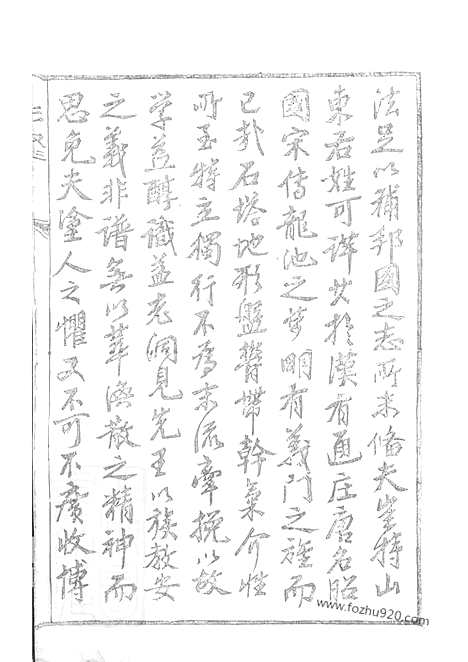 法足以補邦國之志所未備夫峯特山
東若姓可詳其於漢有通庄唐名昭
國宋傳龍池之夢明有義門之旌而
已哉石塔地形盤礡帶幹氣介性
所至特立獨行不為末流牽挽以故
学益醇識益充洞見先王以族教安
之義非譜無以萃渙散之精神而
思免夫塗人之懼又不可不廣收博
www.fozhu920.com